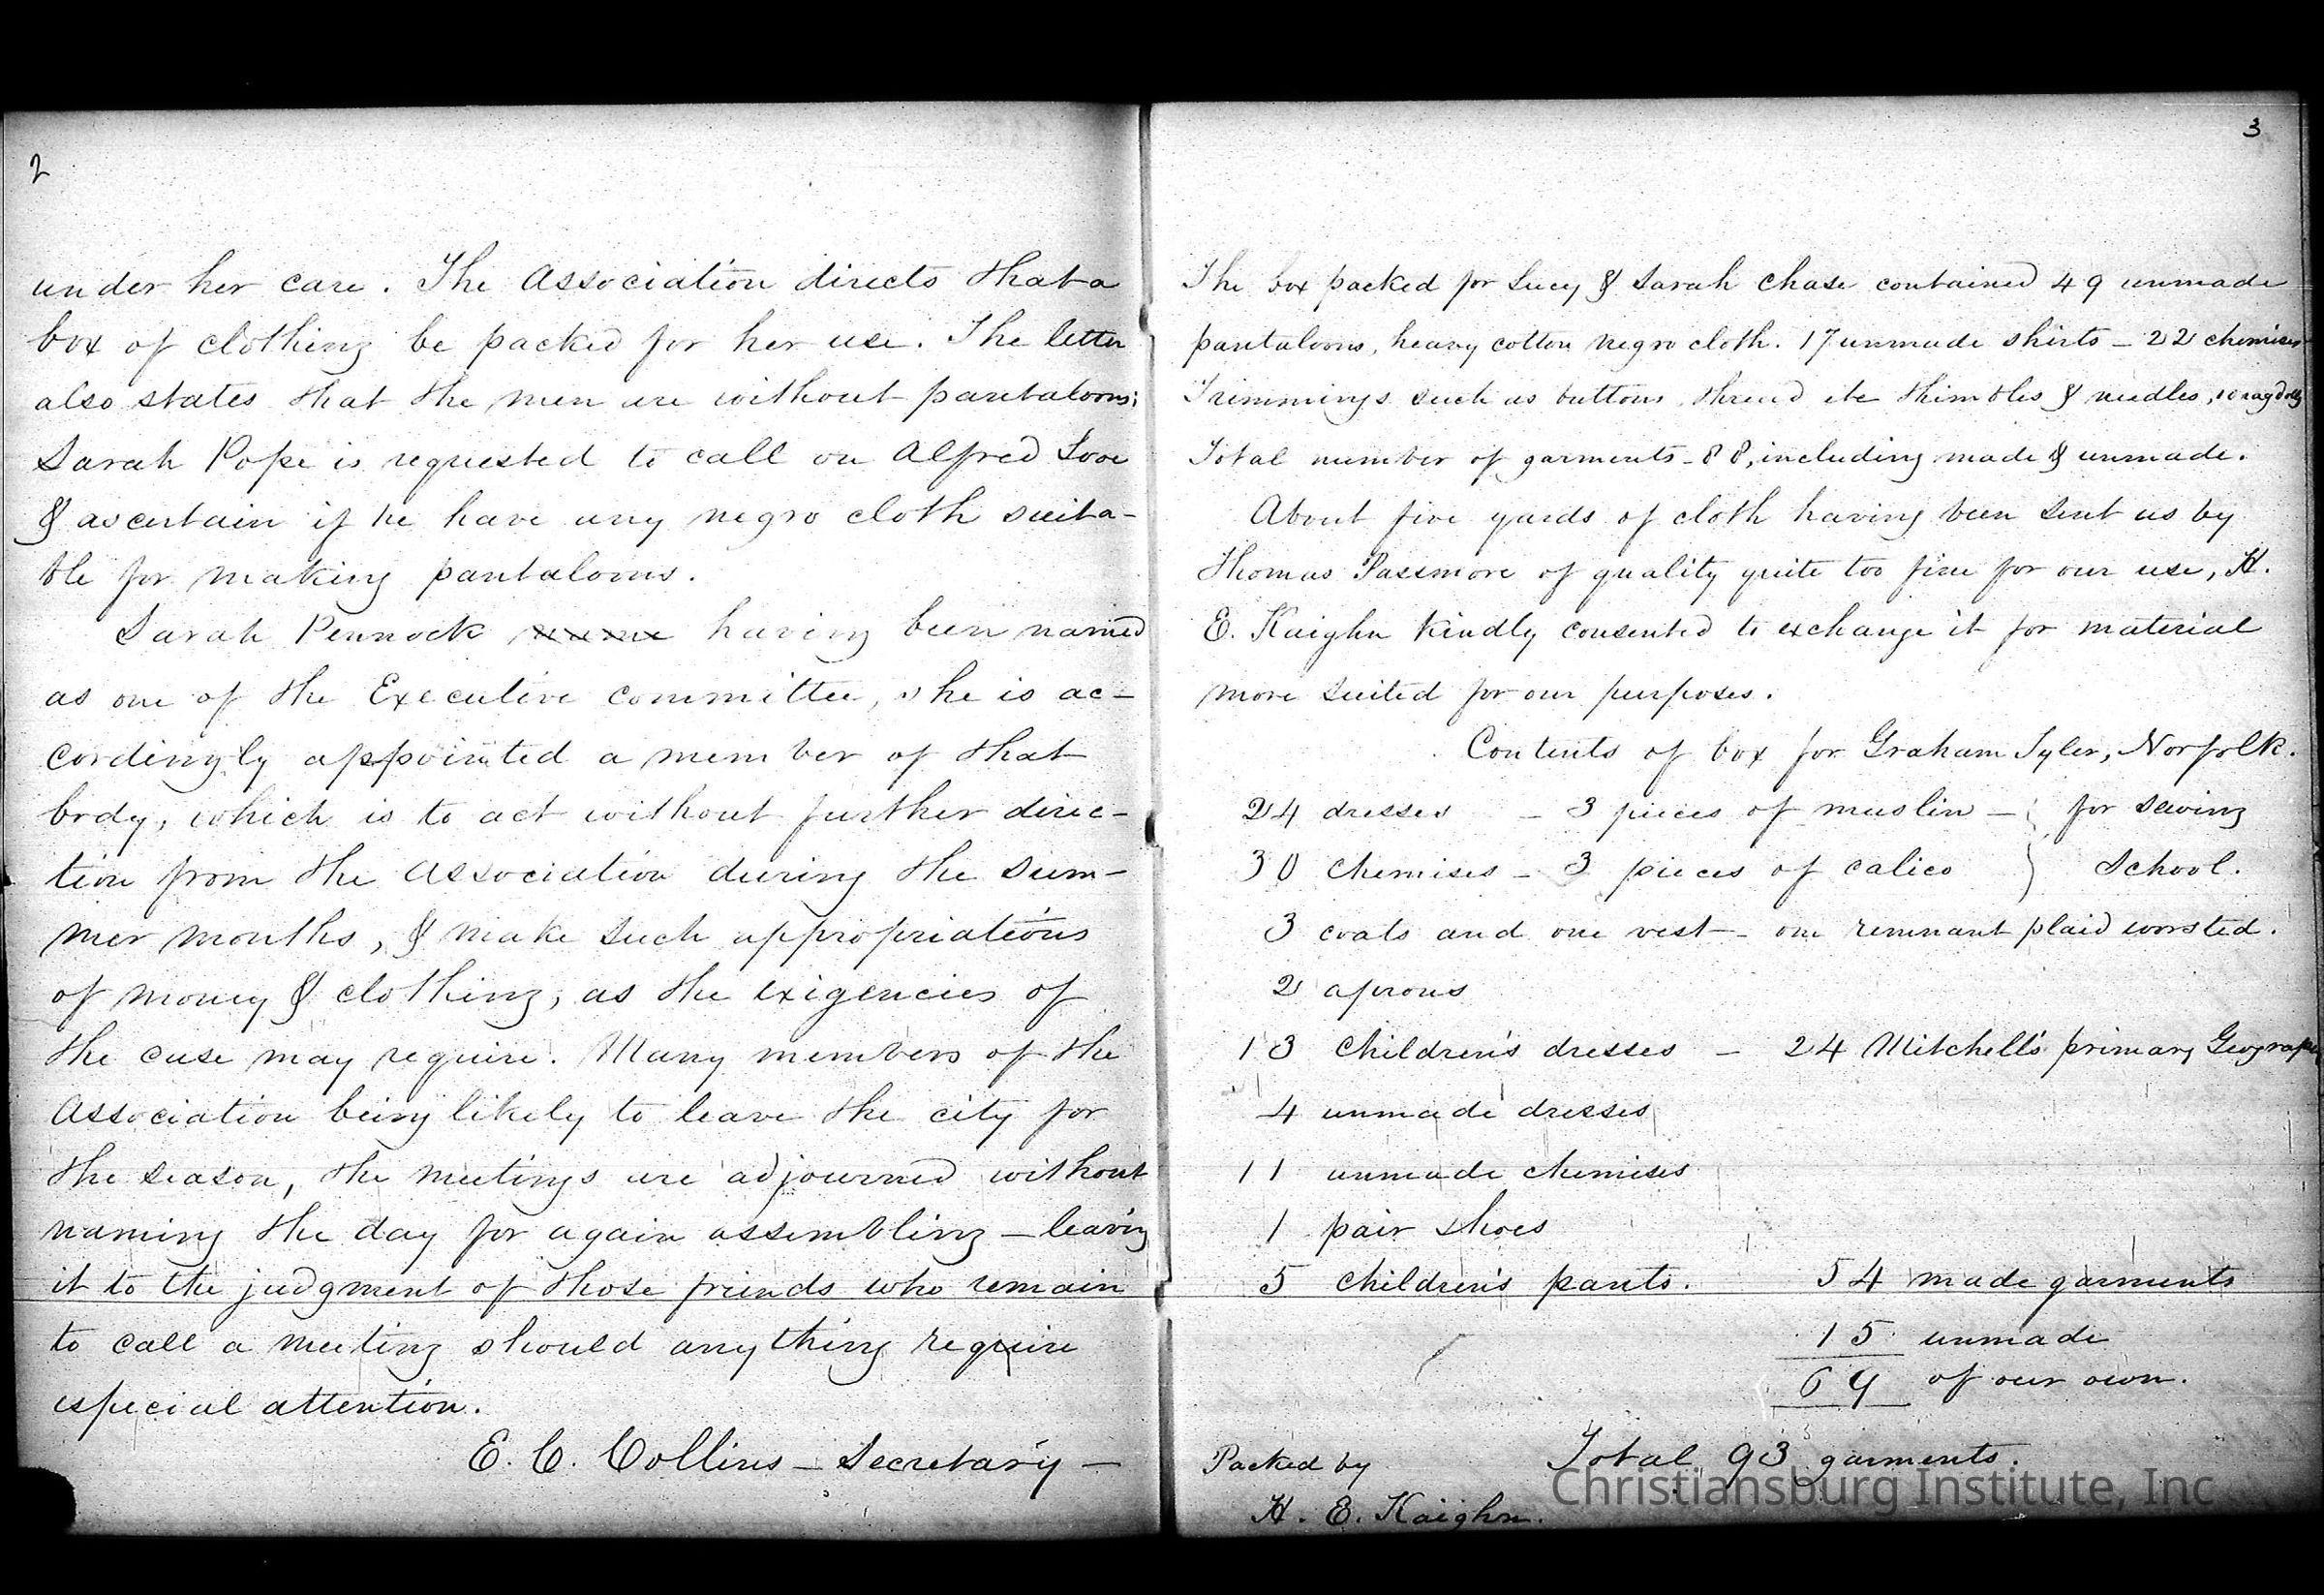 2
under her care. The Association directs that a
box of clothing be packed for her use. The letter
also states that the men are without pantaloons;
Sarah Pope is requested to call on Alfred Love
& ascertain if he have any negro cloth suita-
ble for making pantaloons.
Sarah Pennock having been named
as one of the Executive committee, she is ac-
cordingly appointed a member of that
body, which is to act without further direc-
tion from the Association during the sum-
mer months, & make such appropriations
of money & clothing, as the exigencies of
the case may require. Many members of the
Association being likely to leave the city for
the season, the meetings are adjourned without
naming the day for again assembling - leaving
it to the judgment of those friends who remain
to call a meeting should anything require
especial attention.
E. C. Collins - Secretary -
3
The box packed for Lucy & Sarah Chase contained 49 unmade
pantaloons, heavy cotton negro cloth. 17 unmade shirts - 22 chemises
Trimmings such as buttons, thread etc thimbles & needles, 10 rag dolls
Total number of garments - 88, including made & unmade.
About five yards of cloth having been sent us by
Thomas Passmore of quality quite too fine for our use, H.
E. Kaighn kindly consented to exchange it for material
more suited for our purposes.
Contents of box for Graham Tyler, Norfolk.
24 dresses - 3 pieces of muslin - } for sewing
30 chemises - 3 pieces of calico } School.
3 coats and one vest - one remnant plaid worsted.
2 aprons
13 children's dresses - 24 Mitchell's primary Geograph
4 unmade dresses
11 unmade chemises
1 pair shoes
5 children's pants. 54 made garments
15 unmade
69 of our own.
Total 93 garments.
Packed by
H. E. Kaighn.
Christiansburg Institute, Inc